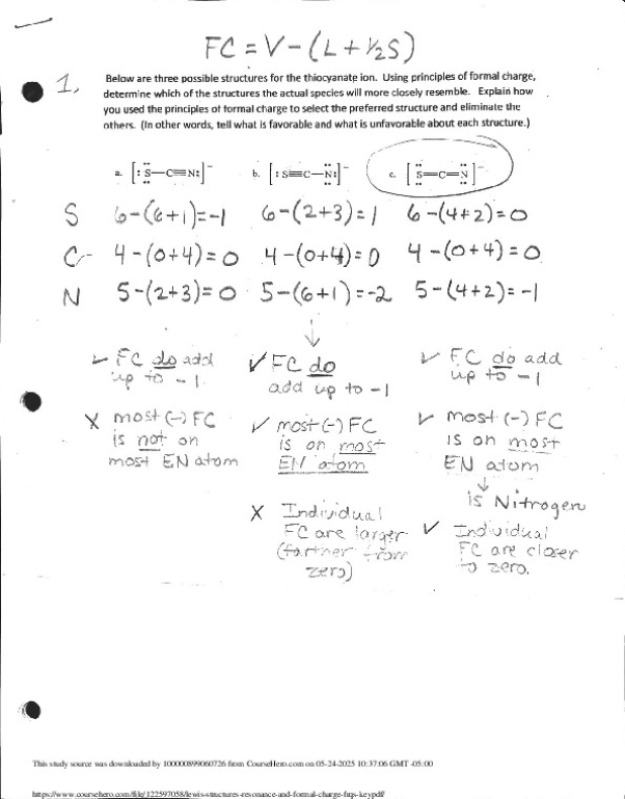 FC = V - (L + 1/2 S)
1. Below are three possible structures for the thiocyanate ion. Using principles of formal charge,
determine which of the structures the actual species will more closely resemble. Explain how
you used the principles of formal charge to select the preferred structure and eliminate the
others. (In other words, tell what is favorable and what is unfavorable about each structure.)
a. [:S̈—C≡N:]⁻ b. [:S≡C—N̈:]⁻ c. [S̈=C=N̈]⁻
S 6-(6+1)=-1 6-(2+3)=1 6-(4+2)=0
C- 4-(0+4)=0 4-(0+4)=0 4-(0+4)=0
N 5-(2+3)=0 5-(6+1)=-2 5-(4+2)=-1
✓ FC do add
up to -1
X most (-) FC
is not on
most EN atom
✓ FC do
add up to -1
✓ most (-) FC
is on most
EN atom
X Individual
FC are larger
(farther from
zero)
✓ FC do add
up to -1
✓ most (-) FC
is on most
EN atom
↓
is Nitrogen
✓ Individual
FC are closer
to zero.
This study source was downloaded by 100000899060726 from CourseHero.com on 05-24-2025 10:37:06 GMT -05:00
https://www.coursehero.com/file/122597058/lewis-structures-resonance-and-formal-charge-fnps-keypdf/